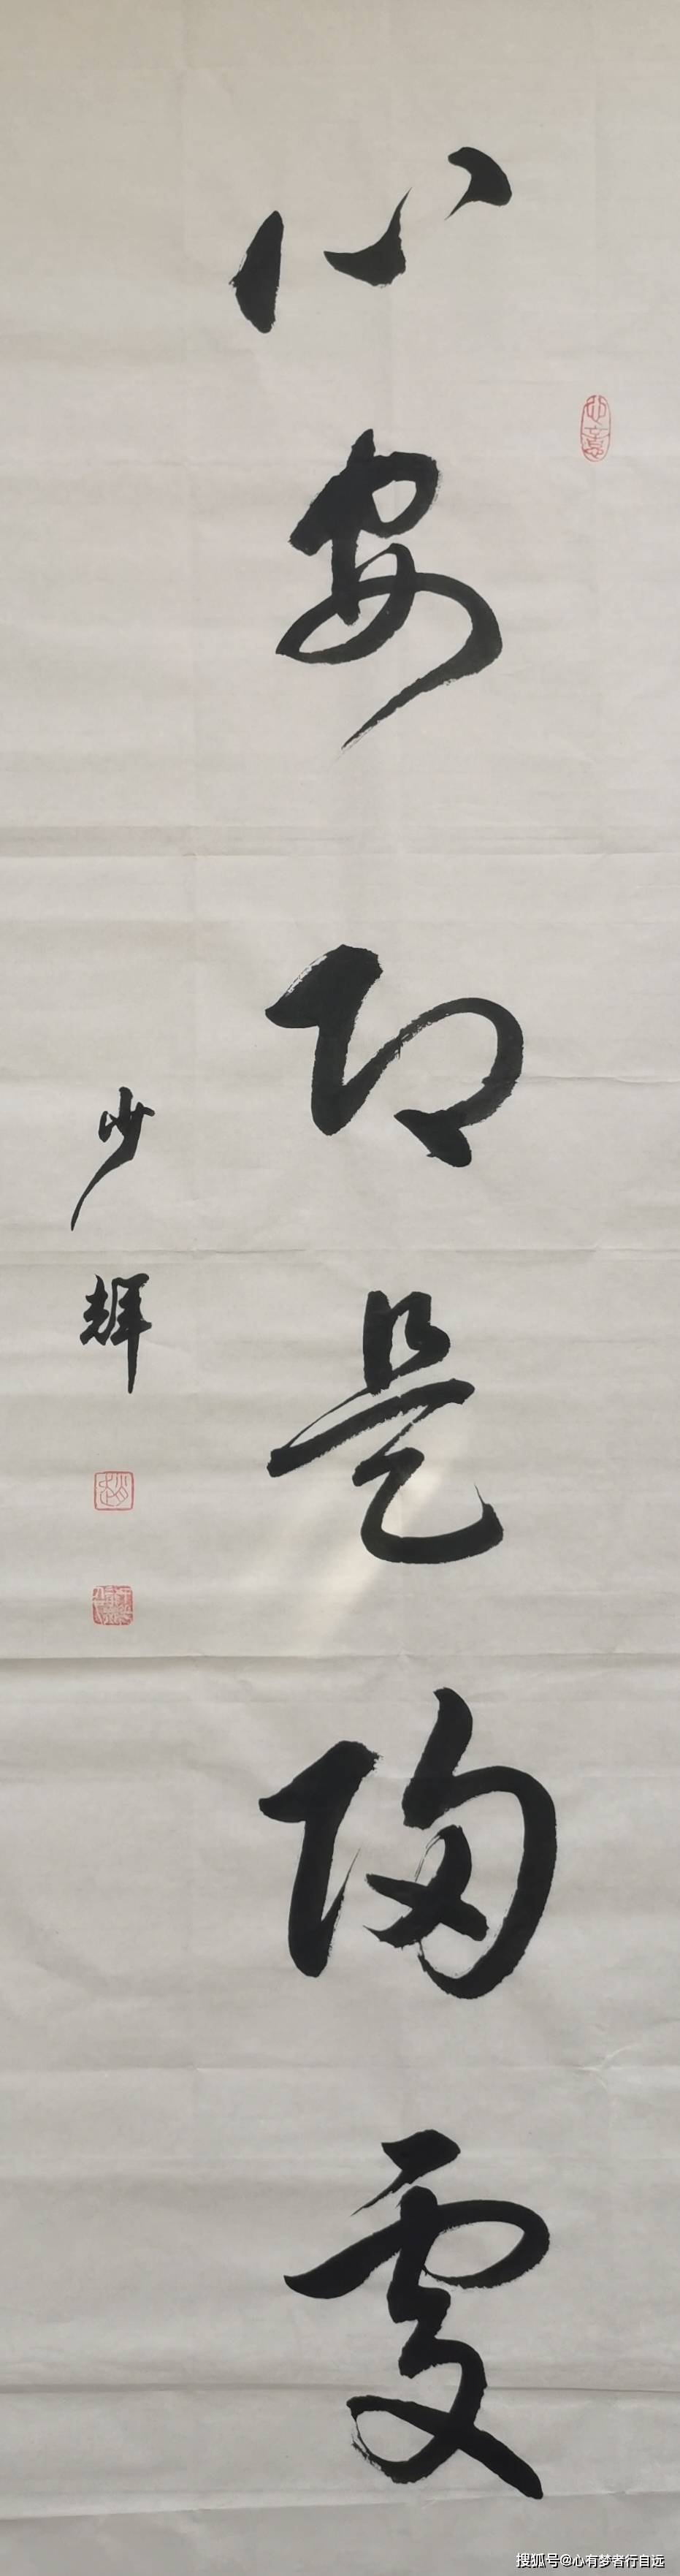 心安即是歸處
少輝
搜狐号@心有梦者行自远